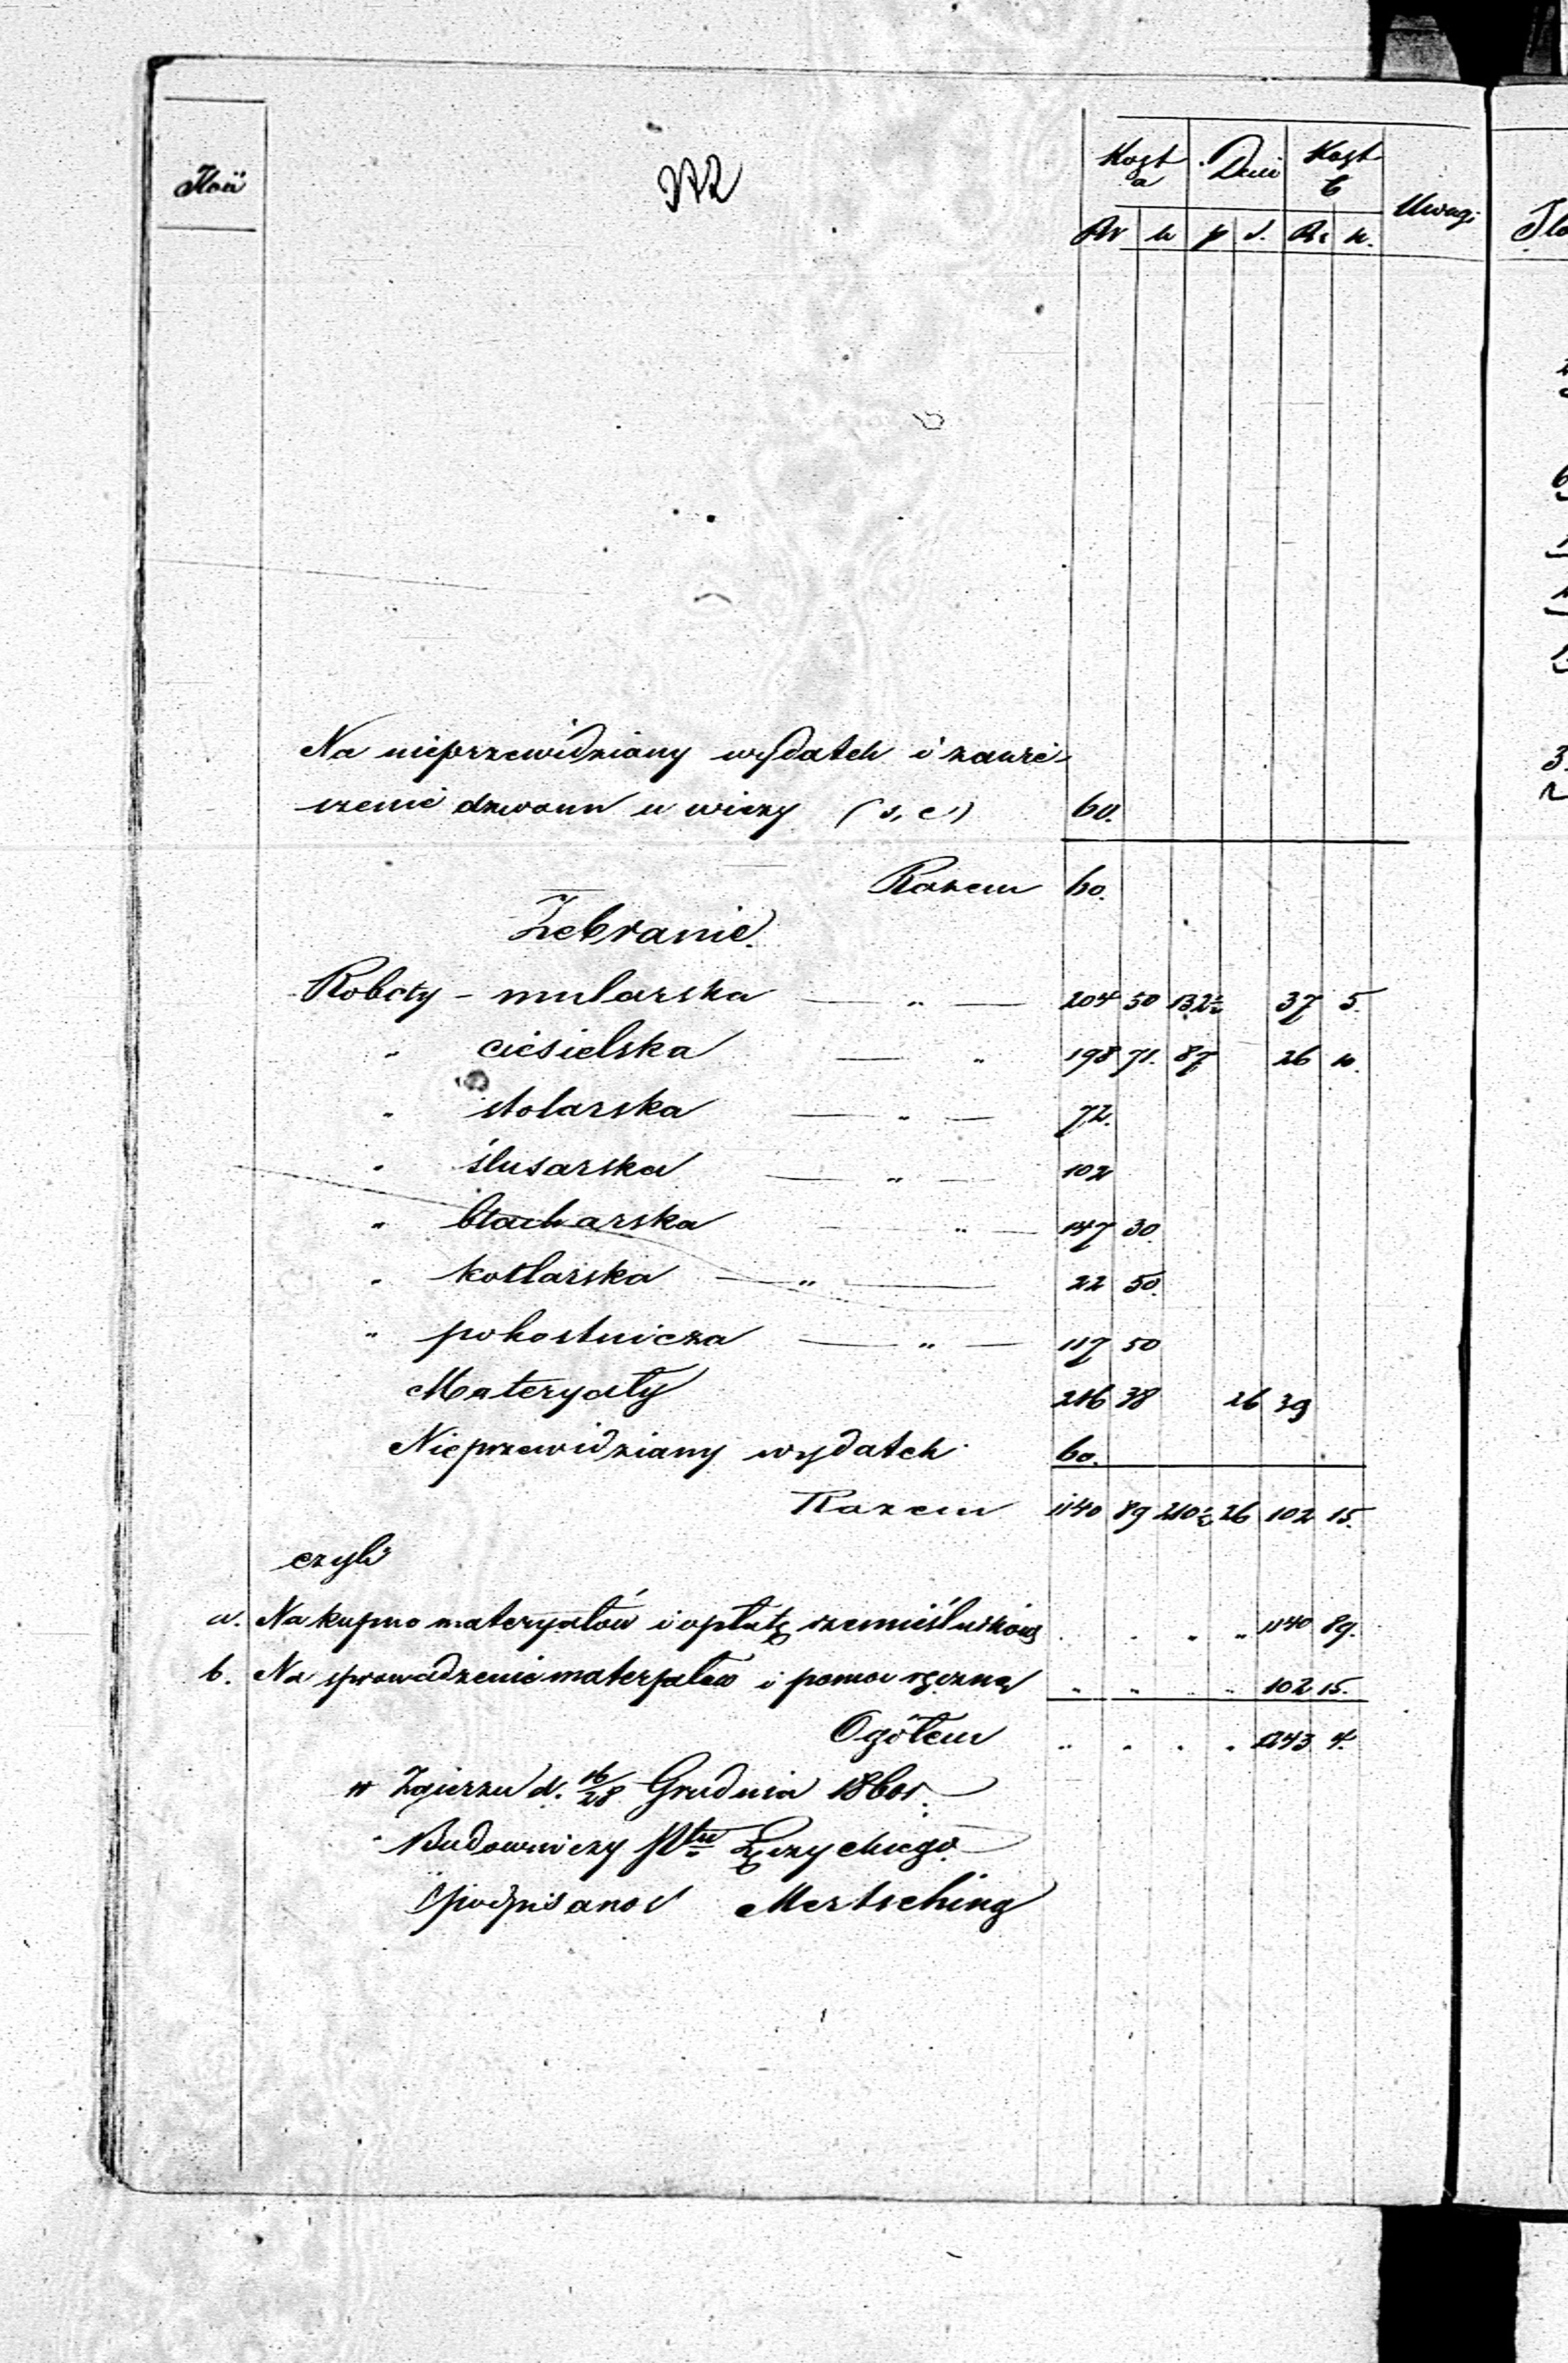 Ilość Koszt a Dnie Koszt b Uwagi
Rs k p s. Rs k.
Na nieprzewidziany wydatek i zawie-
szenie dzwonu u wieży 60.
Razem 60.
Zebranie.
Roboty - mularska — " — 204 50 132½ 37 5.
" ciesielska — " 198 71. 87 26 10.
" stolarska — " — 72.
" ślusarska — " — 102
" blacharska — " — 147 30.
" kotlarska — " — 22 50.
" pokostnicza — " — 117 50
Materyały 216 38 26 39
Nieprzewidziany wydatek 60.
Razem 1140 89 210½ 26 102 15.
czyli
a. Na kupno materyałów i opłatę rzemieślników . . " " 1140 89.
b. Na sprowadzenie materyałów i pomoc ręczną " " " " 102 15.
Ogółem " " " " 1243 4.
w Zgierzu d. 16/28 Grudnia 1860 r.
Budowniczy Ptu Łęczyckiego
(podpisano) Mertsching